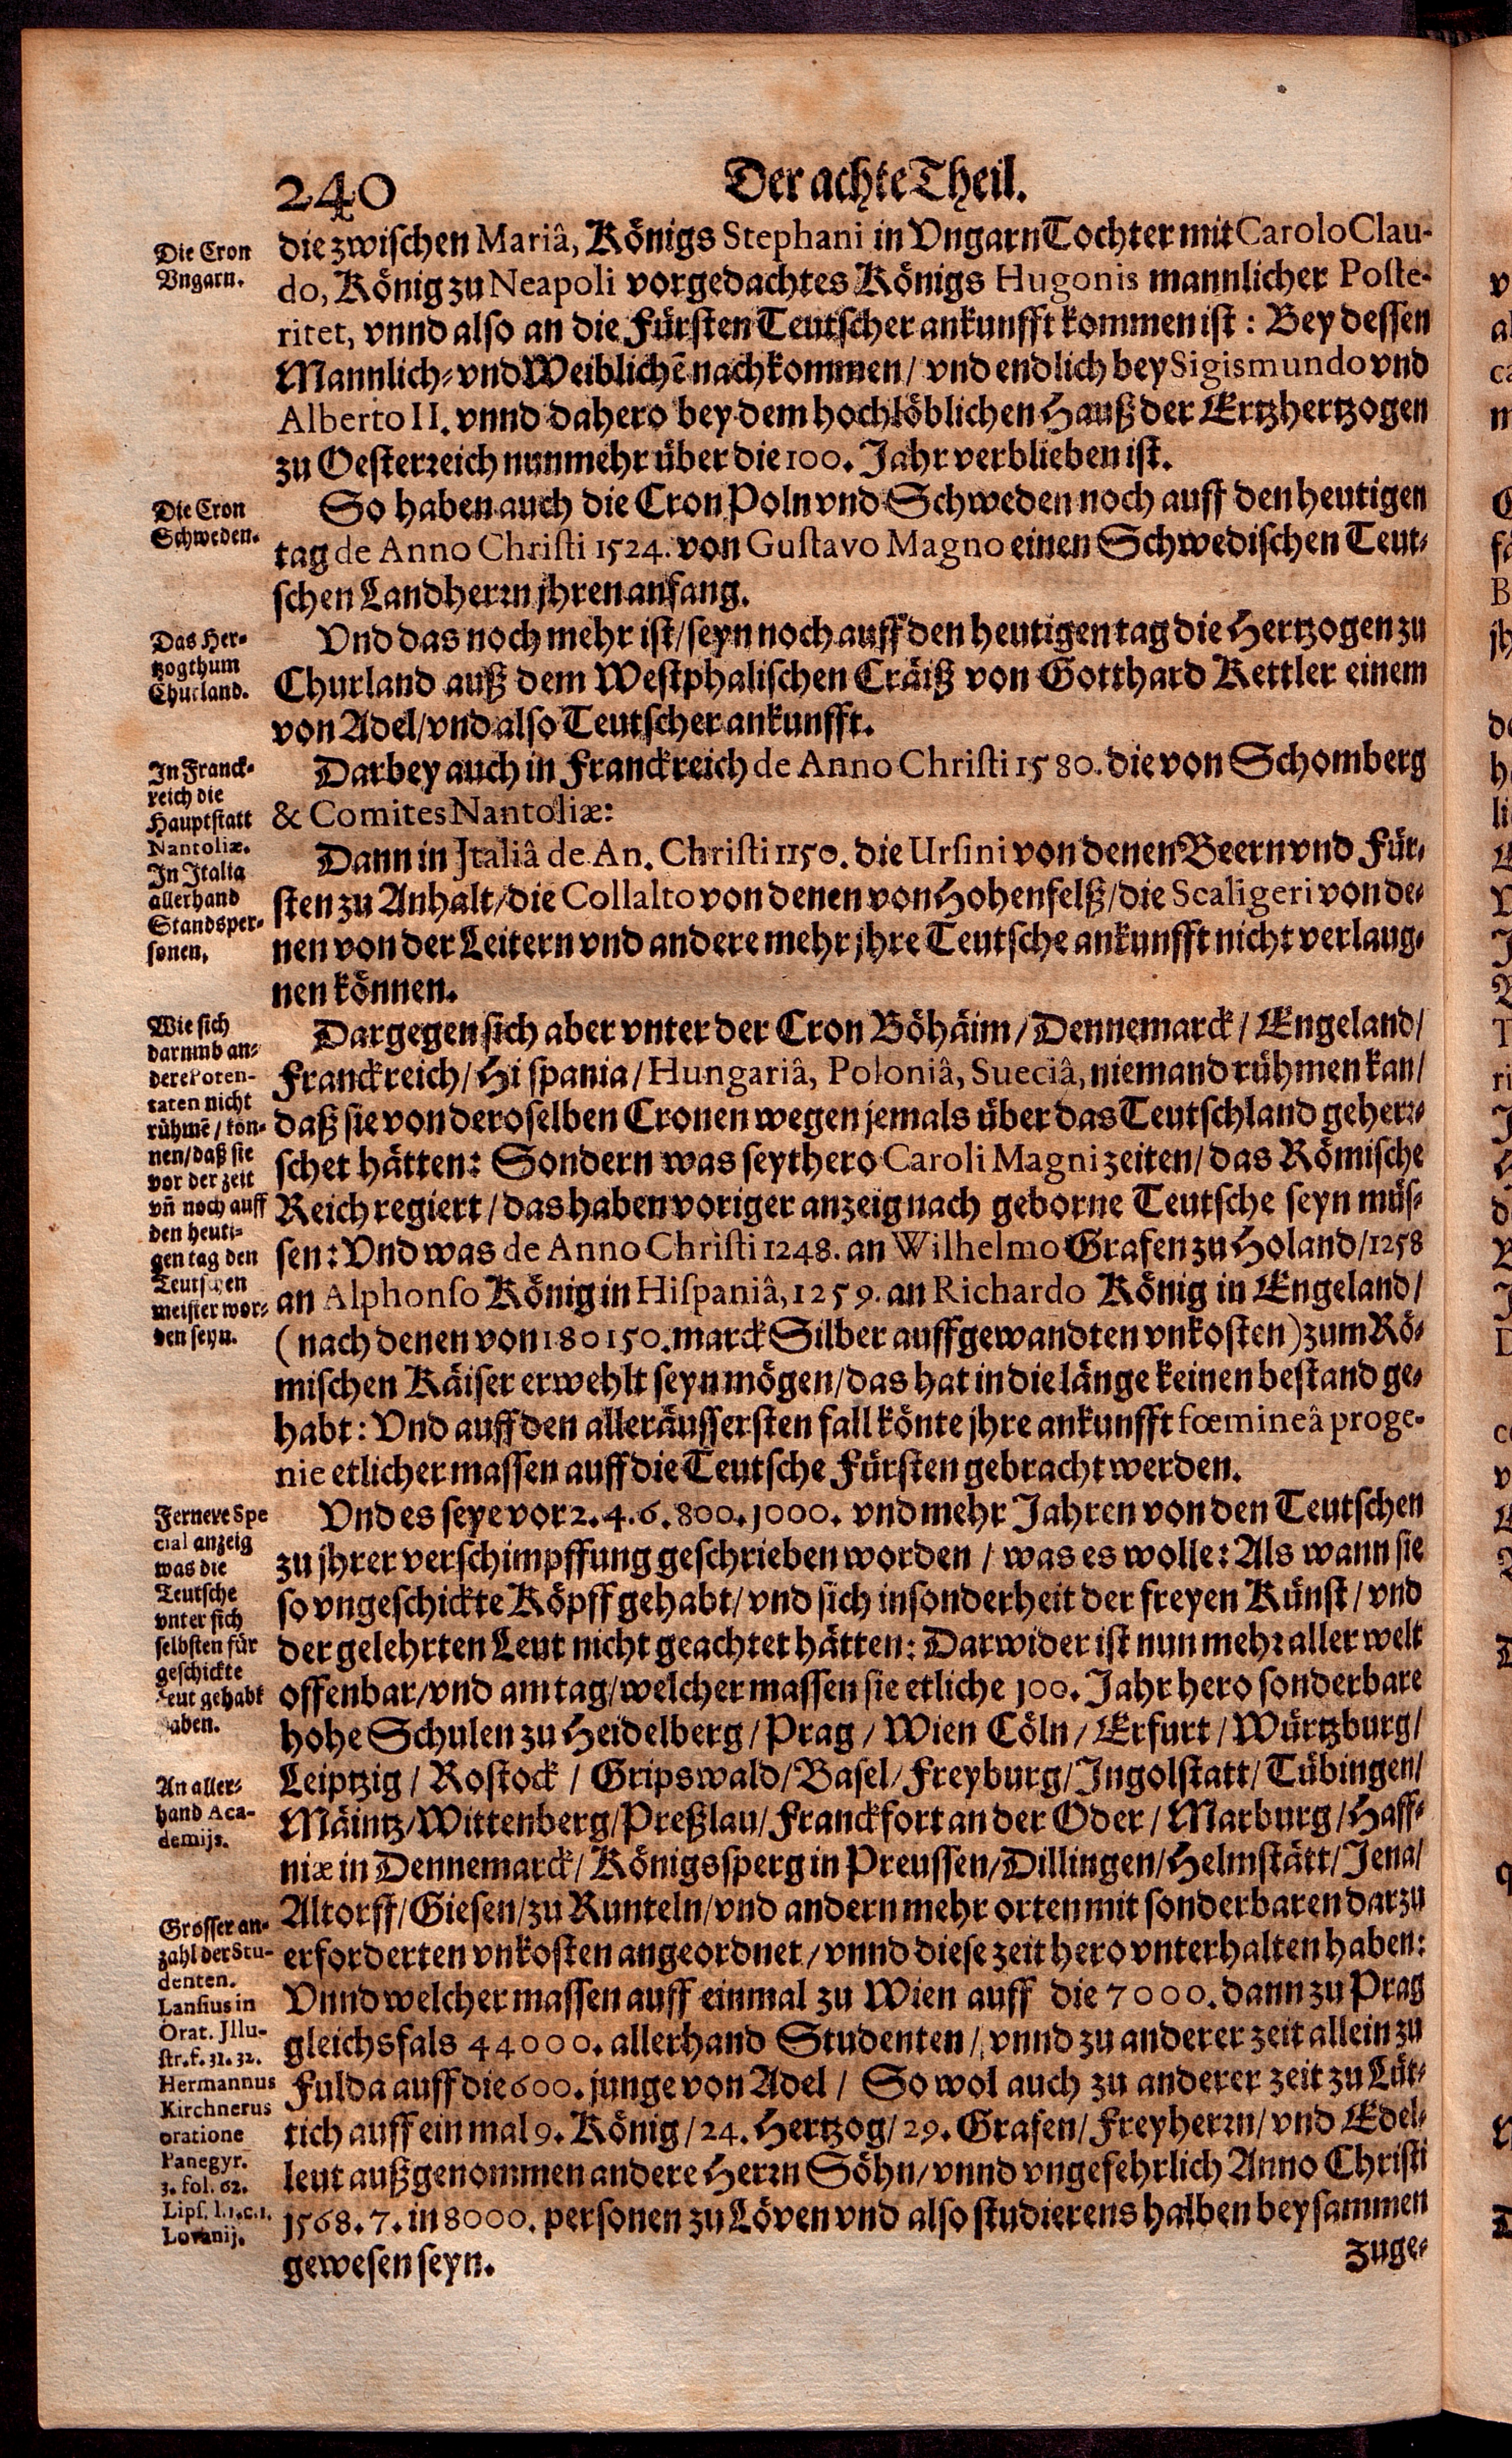 240
Der achte Theil.
die zwischen Mariâ, Königs Stephani in Vngarn Tochter mit Carolo Clau-
do, König zu Neapoli vorgedachtes Königs Hugonis mannlicher Poste-
ritet, vnnd also an die Fürsten Teutscher ankunfft kommen ist: Bey dessen
Mannlich- vnd Weiblichẽ nachkommen/ vnd endlich bey Sigismundo vnd
Alberto II. vnnd dahero bey dem hochlöblichen Hauß der Ertzhertzogen
zu Oesterreich nunmehr über die 100. Jahr verblieben ist.
Die Cron
Vngarn.
So haben auch die Cron Poln vnd Schweden noch auff den heutigen
tag de Anno Christi 1524. von Gustavo Magno einen Schwedischen Teut-
schen Landherrn jhren anfang.
Die Cron
Schweden.
Vnd das noch mehr ist/ seyn noch auff den heutigen tag die Hertzogen zu
Churland auß dem Westphalischen Cräiß von Gotthard Kettler einem
von Adel/ vnd also Teutscher ankunfft.
Das Her-
tzogthum
Churland.
Darbey auch in Franckreich de Anno Christi 1580. die von Schomberg
& Comites Nantoliæ:
Dann in Jtaliâ de An. Christi 1150. die Ursini von denen Beern vnd Für-
sten zu Anhalt/ die Collalto von denen von Hohenfelß/ die Scaligeri von de-
nen von der Leitern vnd andere mehr jhre Teutsche ankunfft nicht verlaug-
nen können.
In Franck-
reich die
Hauptstatt
Nantoliæ.
In Italia
allerhand
Standsper-
sonen.
Dargegen sich aber vnter der Cron Böhäim/ Dennemarck/ Engeland/
Franckreich/ Hispania/ Hungariâ, Poloniâ, Sueciâ, niemand rühmen kan/
daß sie von deroselben Cronen wegen jemals über das Teutschland geherr-
schet hätten: Sondern was seythero Caroli Magni zeiten/ das Römische
Reich regiert/ das haben voriger anzeig nach geborne Teutsche seyn müs-
sen: Vnd was de Anno Christi 1248. an Wilhelmo Grafen zu Holand/ 1258
an Alphonso König in Hispaniâ, 1259. an Richardo König in Engeland/
(nach denen von 180150. marck Silber auffgewandten vnkosten) zum Rö-
mischen Käiser erwehlt seyn mögen/ das hat in die länge keinen bestand ge-
habt: Vnd auff den alleräussersten fall könte jhre ankunfft fœmineâ proge-
nie etlicher massen auff die Teutsche Fürsten gebracht werden.
Wie sich
darumb an-
dere Poten-
taten nicht
rühmẽ/ kön-
nen/ daß sie
vor der zeit
vñ noch auff
den heuti-
gen tag den
Teutschen
meister wor-
den seyn.
Vnd es seye vor 2. 4. 6. 800. 1000. vnd mehr Jahren von den Teutschen
zu jhrer verschimpffung geschrieben worden/ was es wolle: Als wann sie
so vngeschickte Köpff gehabt/ vnd sich insonderheit der freyen Künst/ vnd
der gelehrten Leut nicht geachtet hätten: Darwider ist nun mehr aller welt
offenbar/ vnd am tag/ welcher massen sie etliche 100. Jahr hero sonderbare
hohe Schulen zu Heidelberg/ Prag/ Wien Cöln/ Erfurt/ Würtzburg/
Leiptzig/ Rostock/ Gripswald/ Basel/ Freyburg/ Ingolstatt/ Tübingen/
Mäintz/ Wittenberg/ Preßlau/ Franckfort an der Oder/ Marburg/ Haff-
niæ in Dennemarck/ Königssperg in Preussen/ Dillingen/ Helmstätt/ Jena/
Altorff/ Giesen/ zu Runteln/ vnd andern mehr orten mit sonderbaren darzu
erforderten vnkosten angeordnet/ vnnd diese zeit hero vnterhalten haben:
Vnnd welcher massen auff einmal zu Wien auff die 7000. dann zu Prag
gleichsfals 44000. allerhand Studenten/ vnnd zu anderer zeit allein zu
Fulda auff die 600. junge von Adel/ So wol auch zu anderer zeit zu Lüt-
tich auff ein mal 9. König/ 24. Hertzog/ 29. Grafen/ Freyherrn/ vnd Edel-
leut außgenommen andere Herrn Söhn/ vnnd vngefehrlich Anno Christi
1568. 7. in 8000. personen zu Löven vnd also studierens halben beysammen
gewesen seyn.
Fernere Spe
cial anzeig
was die
Teutsche
vnter sich
selbsten für
geschickte
Leut gehabt
haben.
An aller-
hand Aca-
demijs.
Grosser an-
zahl der Stu-
denten.
Lansius in
Orat. Jllu-
str. f. 31. 32.
Hermannus
Kirchnerus
oratione
Panegyr.
3. fol. 62.
Lips. l. 1. c. 1.
Lovanij.
zuge-